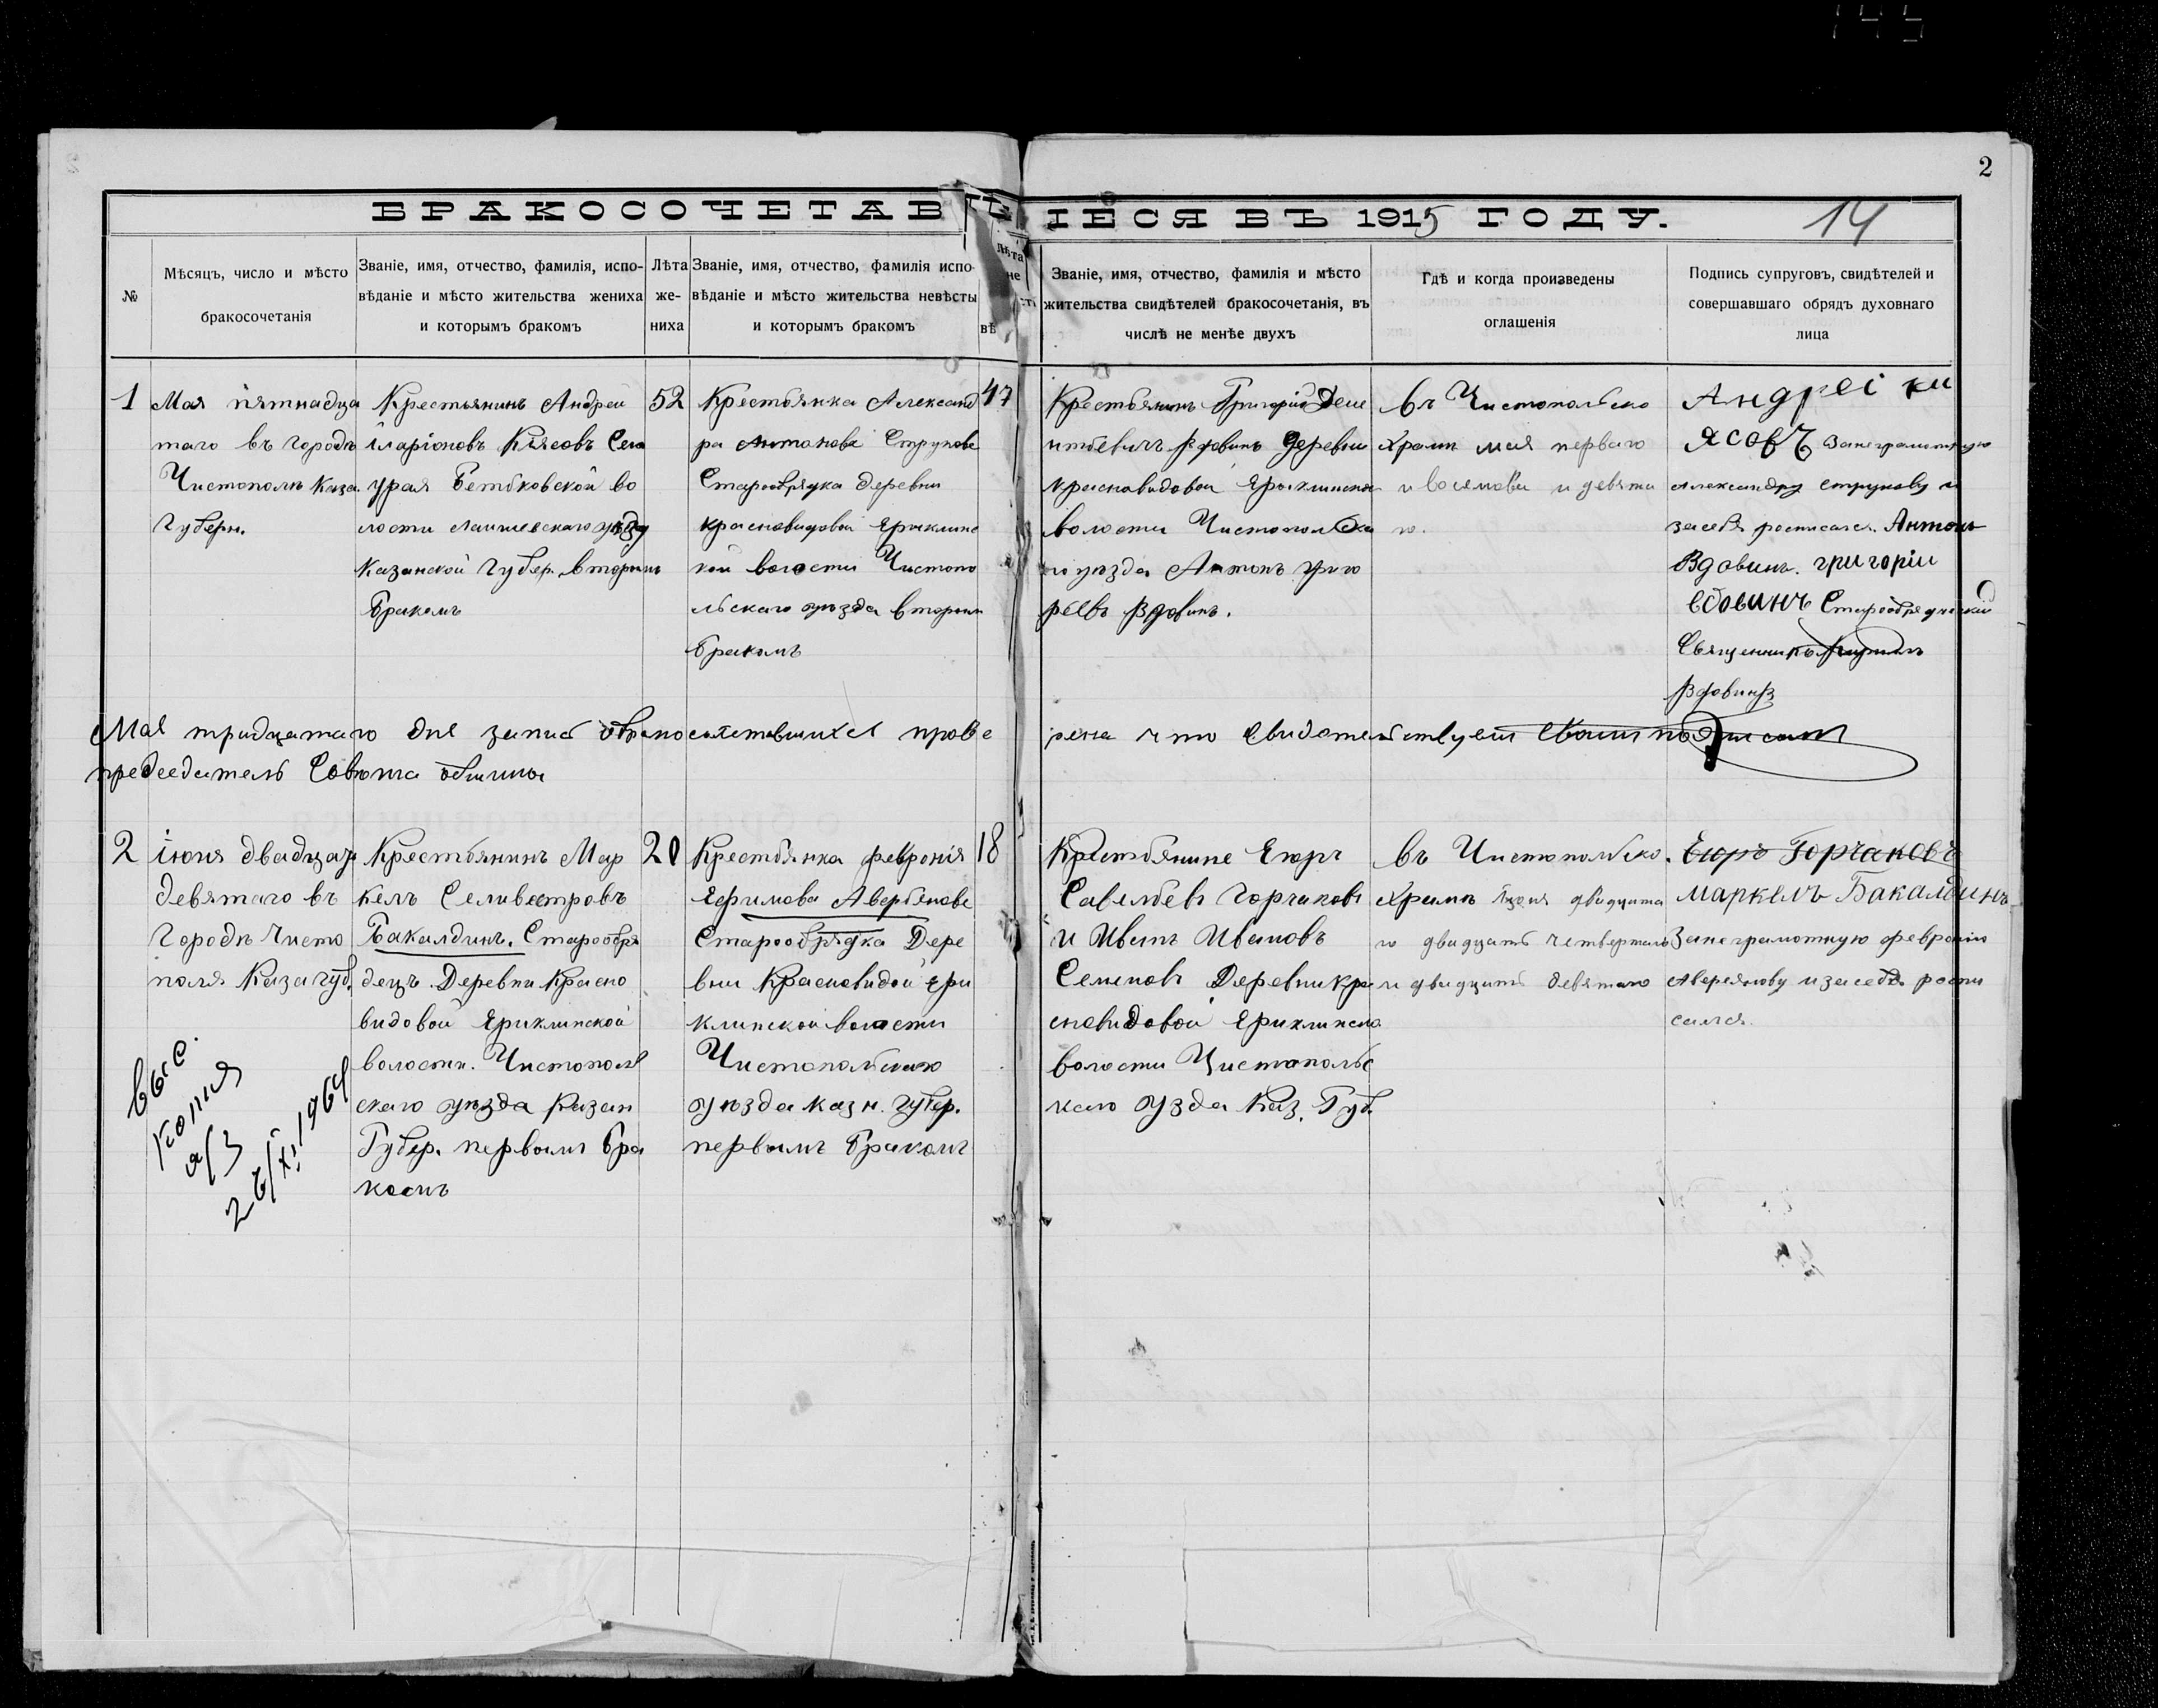 2
БРАКОСОЧЕТАВ
ІЕСЯ ВЪ 1915 ГОДУ.
14
№
Мѣсяцъ, число и мѣсто
бракосочетанія
Званіе, имя, отчество, фамилія, испо-
вѣданіе и мѣсто жительства жениха
и которымъ бракомъ
Лѣта
же-
ниха
Званіе, имя, отчество, фамилія испо-
вѣданіе и мѣсто жительства невѣсты
и которымъ бракомъ
Лѣта
не
вѣ
сты
Званіе, имя, отчество, фамилія и мѣсто
жительства свидѣтелей бракосочетанія, въ
числѣ не менѣе двухъ
Гдѣ и когда произведены
оглашенія
Подпись супруговъ, свидѣтелей и
совершавшаго обрядъ духовнаго
лица
1
Мая пятнадца
таго въ городѣ
Чистополѣ Каза.
Губерн.
Крестьянинъ Андрей
Іларіоновъ Кіясовъ Села
урая Бетьковской во
лости Лаишевскаго уѣзду
Казанской Губер. вторымъ
бракомъ
52
Крестьянка Александ
ра Антонова Струкова
Старообрядка деревни
Красновидовой Ерыклинс
кой волости Чистопо
льскаго уѣзда вторым
бракомъ
47
Крестьянинъ Григорій Деме
нтьевичъ Вдовинъ деревни
Красновидовой Ерыклинской
волости Чистопольска
го уѣзда Антонъ Григо
рьевъ Вдовинъ.
въ Чистопольско
Храмѣ мая перваго
и восьмова и девята
го.
Андреі ки
ясовъ за неграмотную
Александру Струкову и
за себя росписался. Антонъ
Вдовинъ. григоріи
вдовинъ Старообрядческій
Священникъ
Вдовинъ
Мая тридцатаго дня запись обракосочетавшихся прове
рена что свидѣтельствует своим подписом
председатель Совѣта общины
2
Іюня двадцать
девятаго въ
городѣ Чисто
поля Каза губ.
Крестьянинъ Мар
келъ Селивестровъ
Бакалдинъ. Старообря
децъ Деревни Красно
видовой Ериклинской
волости. Чистополь
скаго уѣзда Казан
Губер. первымъ бра
комъ
20
Крестьянка февронія
Ефимова Аверьянова
Старообрядка Дере
вни Красновидой Ери
клинской волости
Чистопольскаго
уѣзда казн. губер.
первымъ бракомъ
18
Крестьянине Егоръ
Савельевъ Горчаковъ
и Иванъ Ивановъ
Семеновъ Деревни Кра
сновидовой Ериклинско
волости Чистопольс
каго уѣзда Каз. Губ.
въ Чистопольско.
Храмѣ Іюня двадцата
го двадцать четвертаго
и двадцать девятаго
Егоръ Горчаковъ
маркелъ Бакалдинъ
За неграмотную февронію
Аверянову и за себя роспи
сался.
выс.
копия
а/з
26/XI 1964